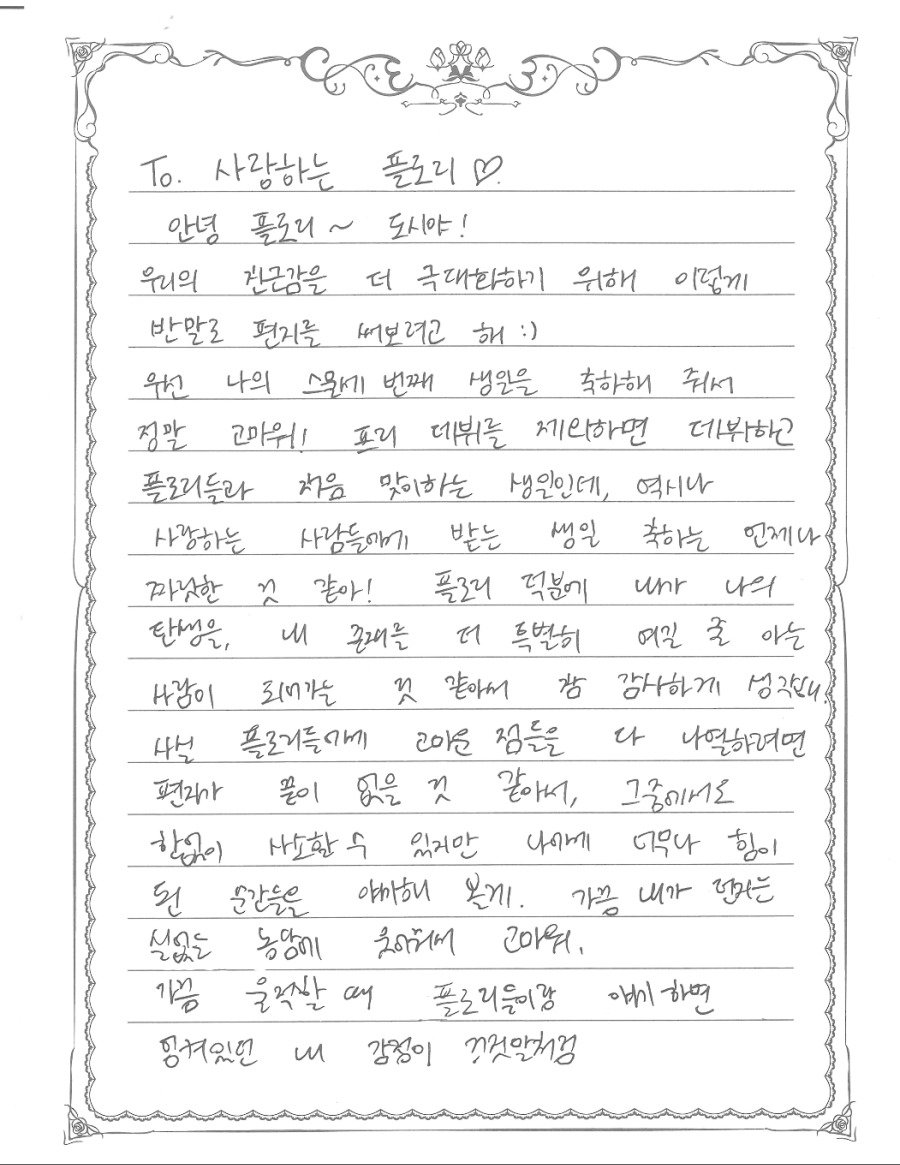 To. 사랑하는 플로리 ♡.
안녕 플로리~ 도시야!
우리의 친근감을 더 극대화하기 위해 이렇게
반말로 편지를 써보려고 해 :)
우선 나의 스물세 번째 생일을 축하해 줘서
정말 고마워! 프리 데뷔를 제외하면 데뷔하고
플로리들과 처음 맞이하는 생일인데, 역시나
사랑하는 사람들에게 받는 생일 축하는 언제나
짜릿한 것 같아! 플로리 덕분에 내가 나의
탄생을, 내 존재를 더 특별히 여길 줄 아는
사람이 되어가는 것 같아서 참 감사하게 생각해.
사실 플로리들에게 고마운 점들을 다 나열하려면
편지가 끝이 없을 것 같아서, 그중에서도
한없이 사소할 수 있지만 나에게 너무나 힘이
된 순간들을 얘기해 볼게. 가끔 내가 던지는
실없는 농담에 웃어줘서 고마워.
가끔 울적할 때 플로리들이랑 얘기하면
엉켜있던 내 감정이 거짓말처럼